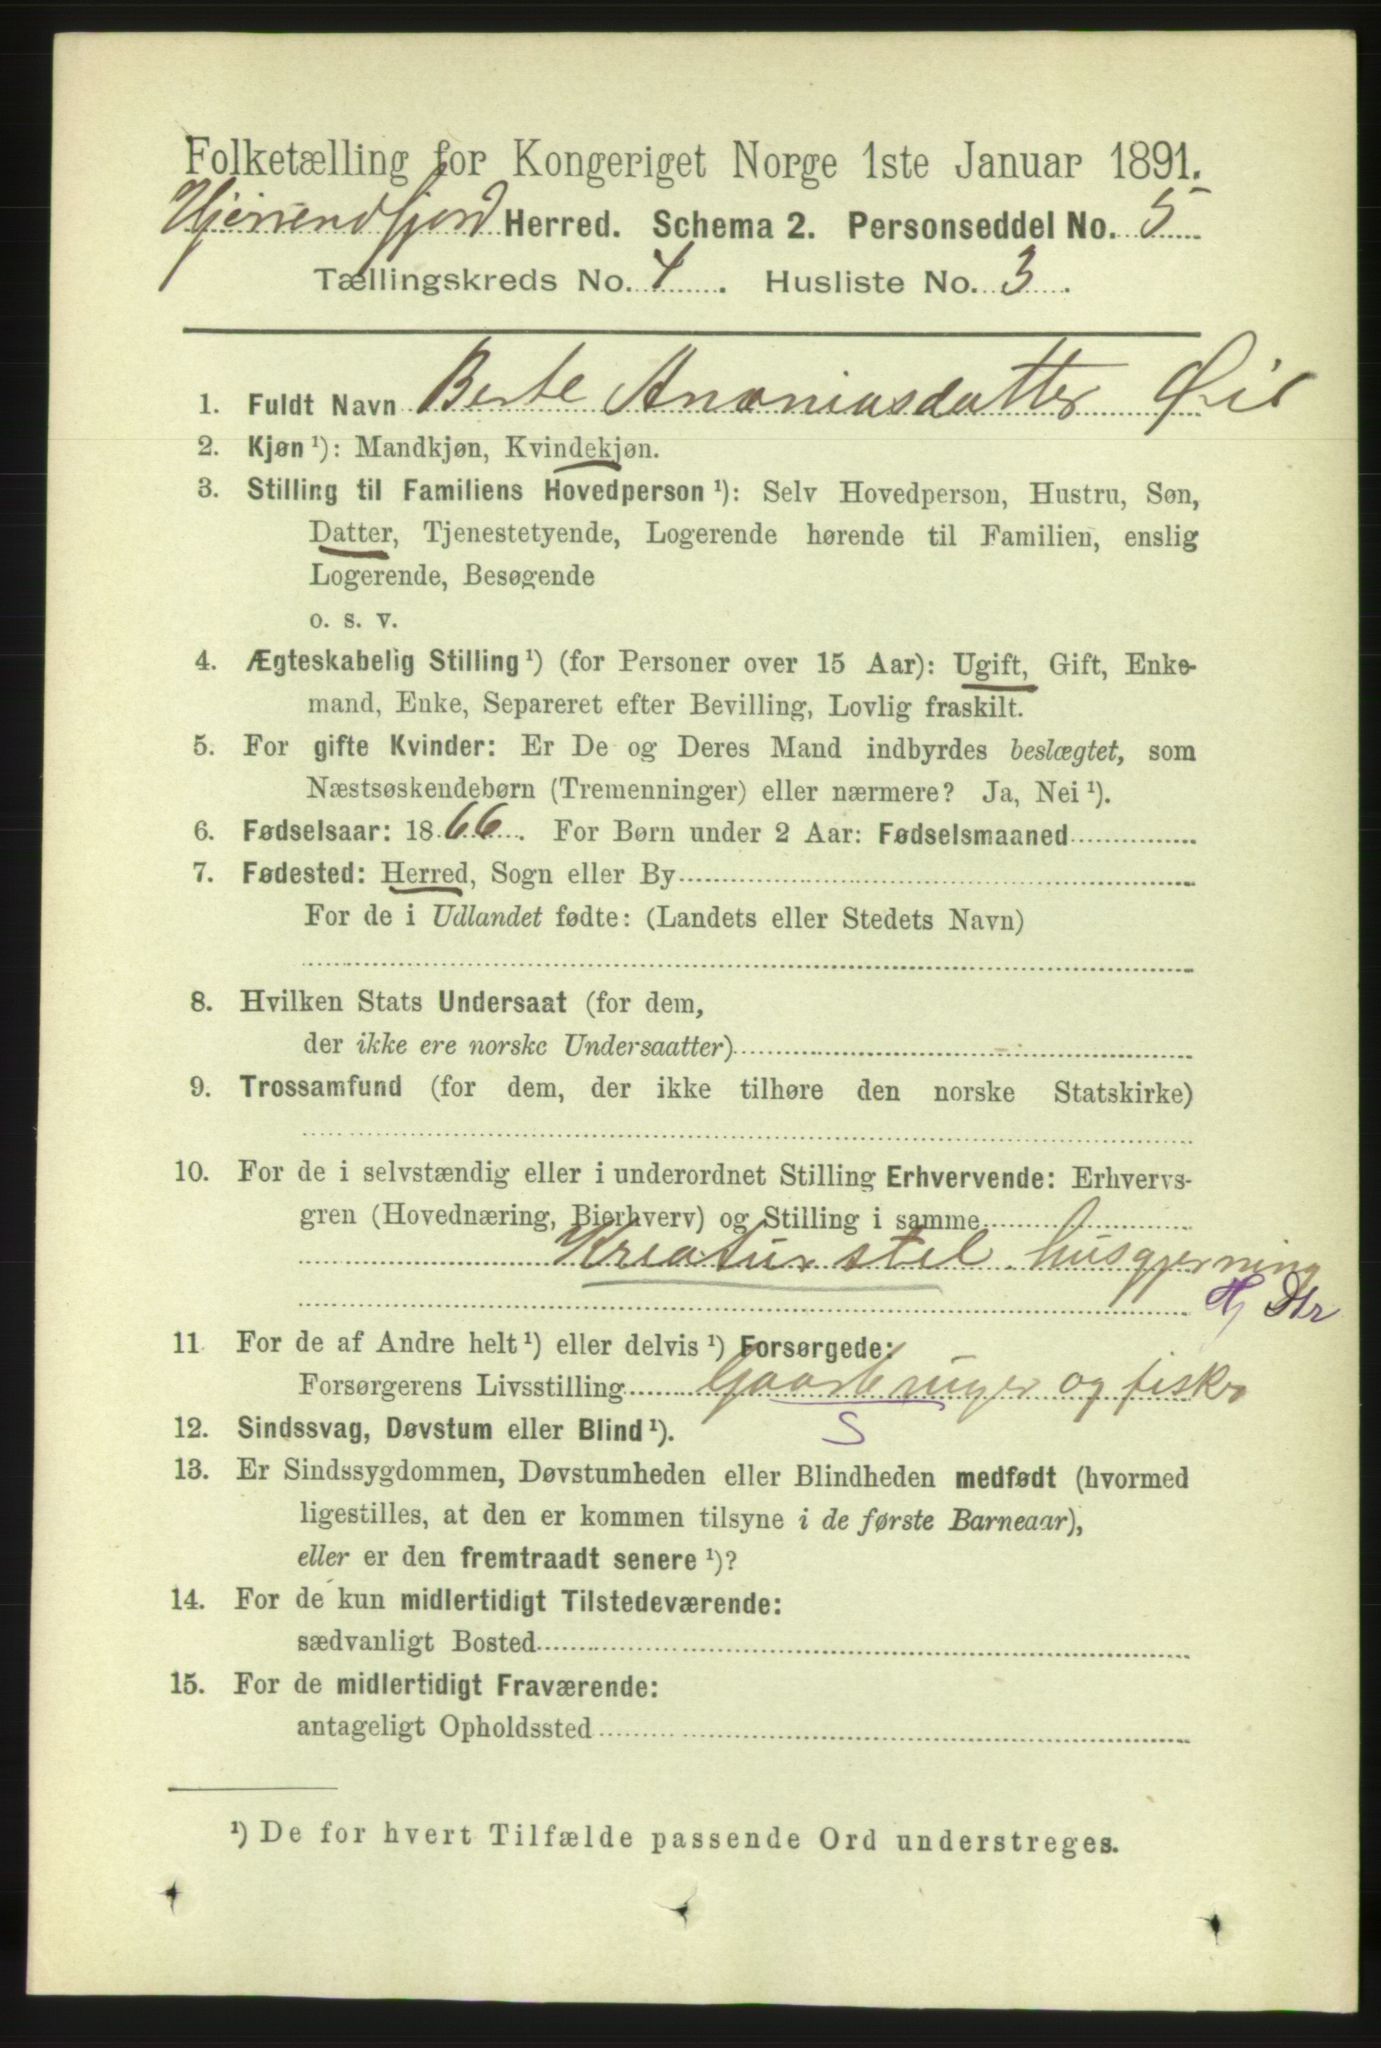 Folketælling for Kongeriget Norge 1ste Januar 1891.
Hjørendfjord Herred. Schema 2. Personseddel No. 5
Tællingskreds No. 4. Husliste No. 3.
1. Fuldt Navn Berte Ananiasdatter
2. Kjøn ¹): Mandkjøn, Kvindekjøn.
3. Stilling til Familiens Hovedperson ¹): Selv Hovedperson, Hustru, Søn,
Datter, Tjenestetyende, Logerende hørende til Familien, enslig
Logerende, Besøgende
o. s. v.
4. Ægteskabelig Stilling ¹) (for Personer over 15 Aar): Ugift, Gift, Enke-
mand, Enke, Separeret efter Bevilling, Lovlig fraskilt.
5. For gifte Kvinder: Er De og Deres Mand indbyrdes beslægtet, som
Næstsøskendebørn (Tremenninger) eller nærmere? Ja, Nei ¹).
6. Fødselsaar: 1866. For Børn under 2 Aar: Fødselsmaaned
7. Fødested: Herred, Sogn eller By
For de i Udlandet fødte: (Landets eller Stedets Navn)
8. Hvilken Stats Undersaat (for dem,
der ikke ere norske Undersaatter)
9. Trossamfund (for dem, der ikke tilhøre den norske Statskirke)
10. For de i selvstændig eller i underordnet Stilling Erhvervende: Erhvervs-
gren (Hovednæring, Bierhverv) og Stilling i samme
Kreaturstel husgjerning
Hj Dtr
11 For de af Andre helt ¹) eller delvis ¹) Forsørgede:
Forsørgerens Livsstilling Gaarbruger og fisker
S
12. Sindssvag, Døvstum eller Blind ¹).
13. Er Sindssygdommen, Døvstumheden eller Blindheden medfødt (hvormed
ligestilles, at den er kommen tilsyne i de første Barneaar),
eller er den fremtraadt senere ¹)?
14. For de kun midlertidigt Tilstedeværende:
sædvanligt Bosted
15. For de midlertidigt Fraværende:
antageligt Opholdssted
¹) De for hvert Tilfælde passende Ord understreges.